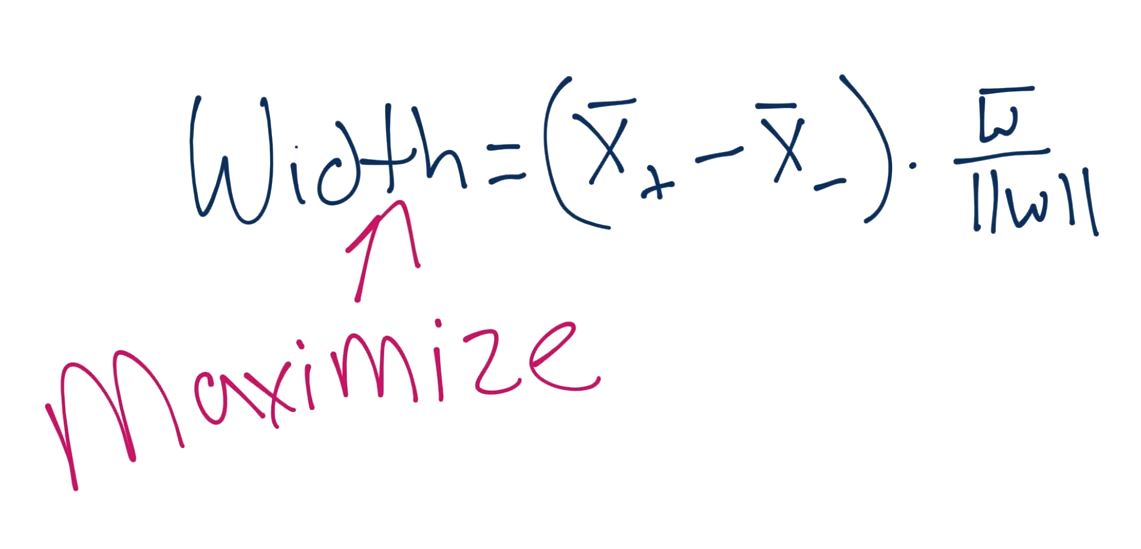 Width = (x̄₊ - x̄₋) · w̄/||w||
Maximize